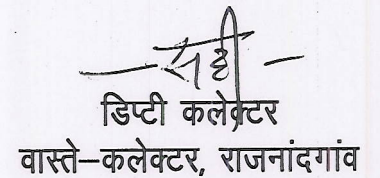 —सही—
डिप्टी कलेक्टर
वास्ते–कलेक्टर, राजनांदगांव